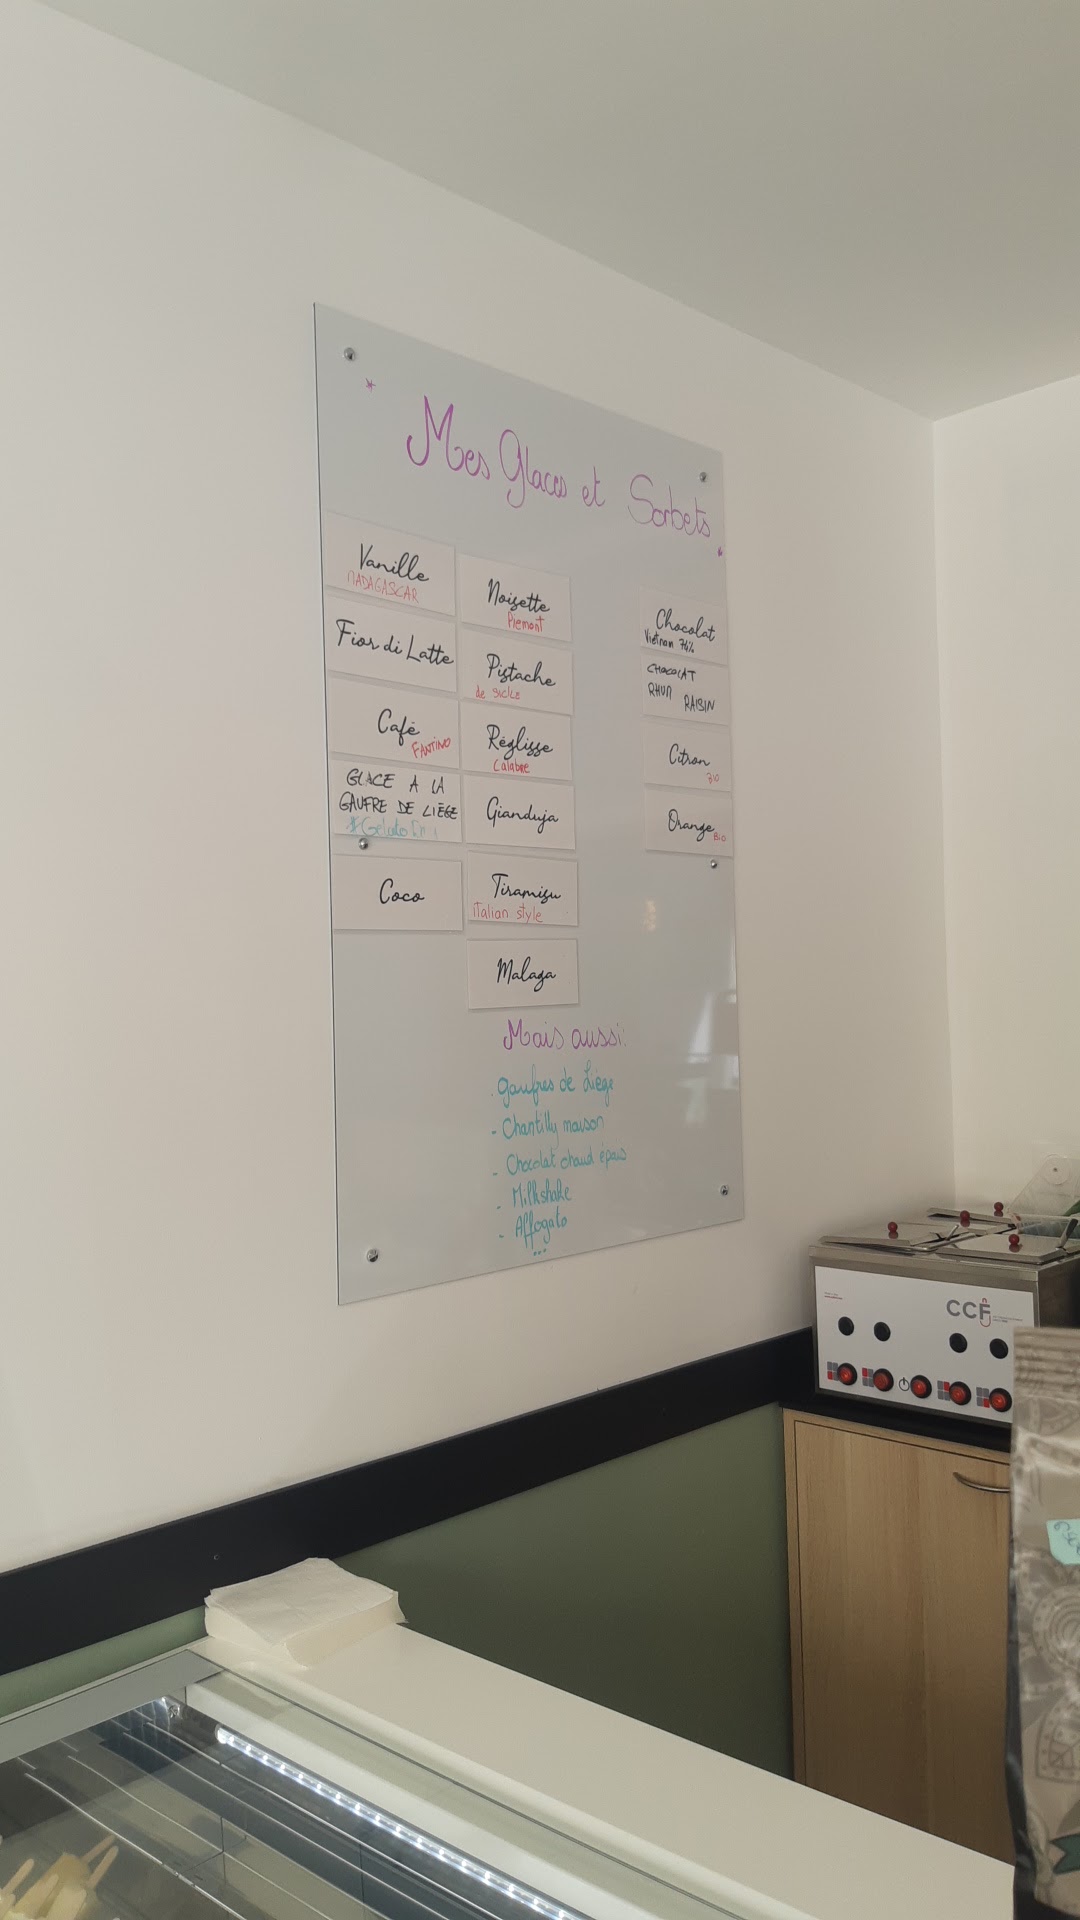 Mes Glaces et Sorbets
Vanille
MADAGASCAR
Fior di Latte
Café
FANTINO
GLACE A LA
GAUFRE DE LIÈGE
Coco
Noisette
Piemont
Pistache
de sicile
Réglisse
Calabre
Gianduja
Tiramisu
italian style
Malaga
Chocolat
Vietnam 74%
CHOCOLAT
RHUM
RAISIN
Citron
BIO
Orange
BIO
Mais aussi:
. gaufres de Liège
- Chantilly maison
- Chocolat chaud épais
- Milkshake
- Affogato
...
CCF